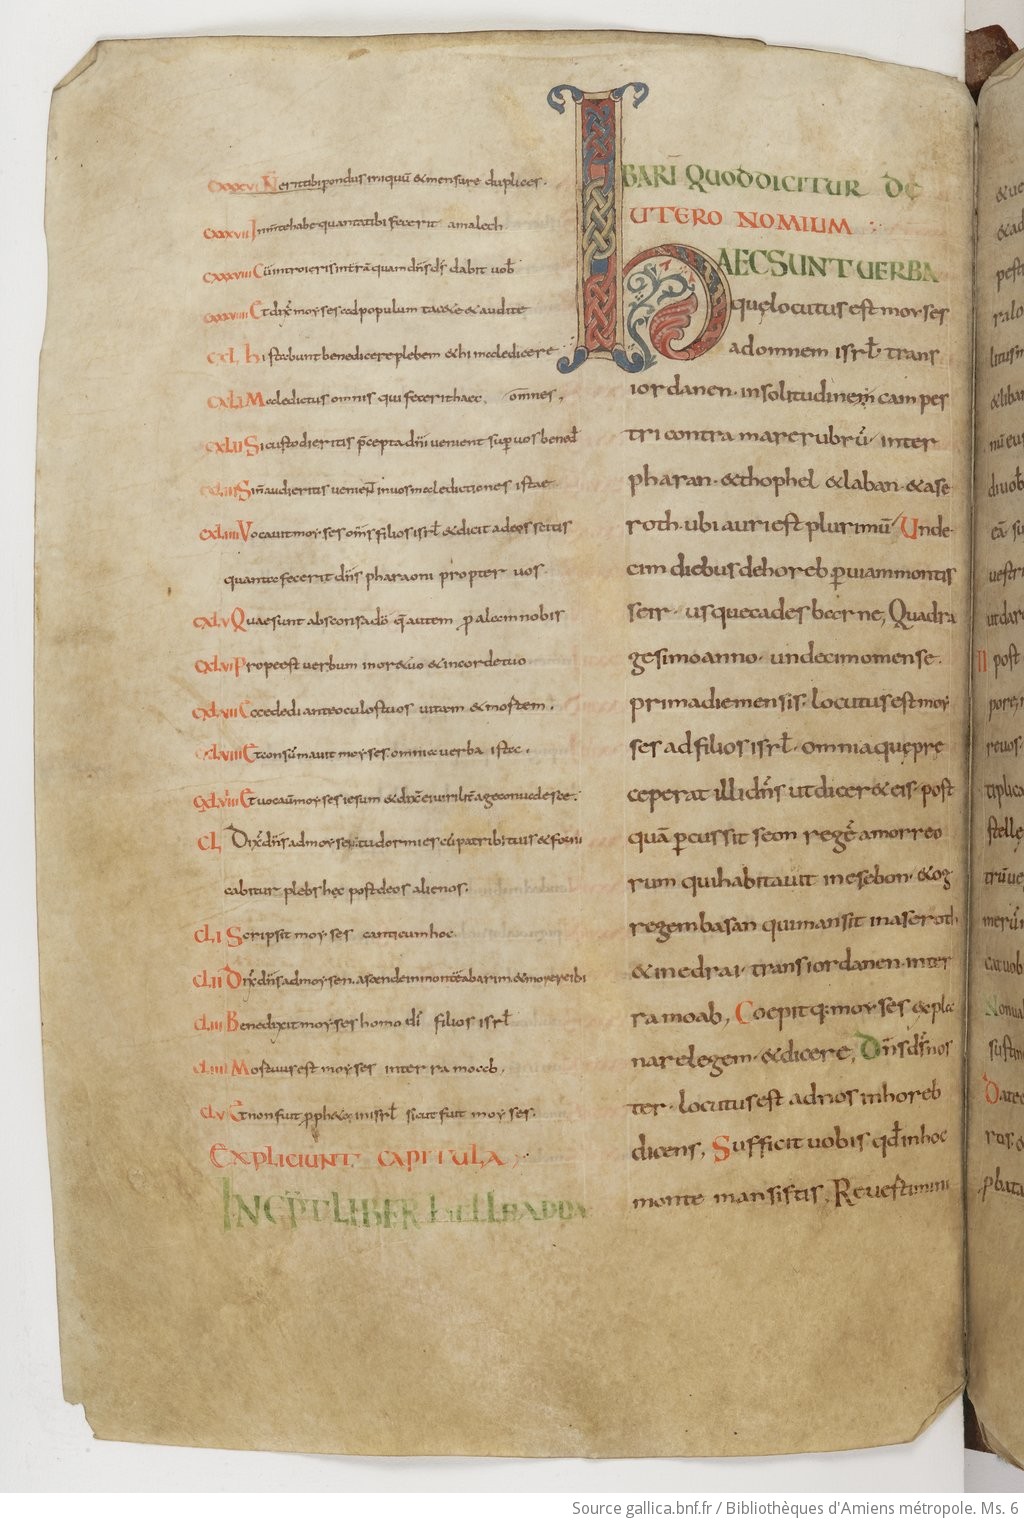 CXXXVI Ñ erit tibi pondus iniquū & mensure duplices.
CXXXVII In mte habe quanta tibi fecerit amalech
CXXXVIII Cū introieris in t̄rā quam dn̄s d̄s dabit uob̄
CXXXVIIII Et dix̄ moyses ad populum tace & audite
CXL Hi stabunt benedicere plebem & hi maledicere
CXLI Maledictus omnis qui fecerit haec om̄nes,
CXLII Si custodieritis p̄cepta dn̄i uenient sup uos bened̄
CXLIII Si n̄ audieritis uenien̄ in uos maledictiones istae
CXLIIII Vocauit moyses om̄s filios isrł & dicit ad eos scitis
quanta fecerit dn̄s pharaoni propter uos.
CXLV Quae sunt absconsa dō q̄ autem p̄ alam nobis
CXLVI Prope est uerbum in ore tuo & in corde tuo
CXLVII Ecce dedi ante oculos tuos uitam & mortem.
CXLVIII Et consūmauit moyses omnia uerba istec.
CXLVIIII Et uocauit moyses iesum & dix̄ ei uirilit̄ age conualesce.
CL Dix̄ dn̄s ad moysen. tu dormies cū patrib; tuis & forni
cabitur plebs hęc post deos alienos.
CLI Scripsit moyses canticum hoc
CLII Dix̄ dn̄s ad moysen. ascende in montē abarim. & morere ibi
CLIII Benedixit moyses homo dī filios isrł
CLIIII Mortuus est moyses in terra moab.
CLV Et non fuit p̄pheta in isrł sicut fuit moyses.
EXPLICIUNT CAPITULA
INCIPIT LIBER HELLEADDA
LIBARĪ QUOD DICITUR DE
UTERO NOMIUM
HAEC SUNT UERBA
quę locutus est moyses
ad omnem isrł. trans
iordanen. in solitudinem campes
tri contra mare rubrū. inter
pharan. & thophel & laban. & ase
roth. ubi auri est plurimū. Unde
cim diebus de horeb p uiam montis
seir. usque cades baarne, Quadra
gesimo anno. undecimo mense.
prima die mensis. locutus est moy
ses ad filios isrł. omnia quę pre
ceperat illi dn̄s ut dicer& eis. post
quā percussit seon regē amorreo
rum qui habitauit in esebon. & og
regem basan qui mansit in aseroth
& in edrai. trans iordanen. in ter
ra moab, Coepitq; moyses expla
nare legem. & dicere, Dn̄s d̄s nos
ter. locutus est ad nos in horeb
dicens, Sufficit uobis qđ in hoc
monte mansistis, Reuertimini